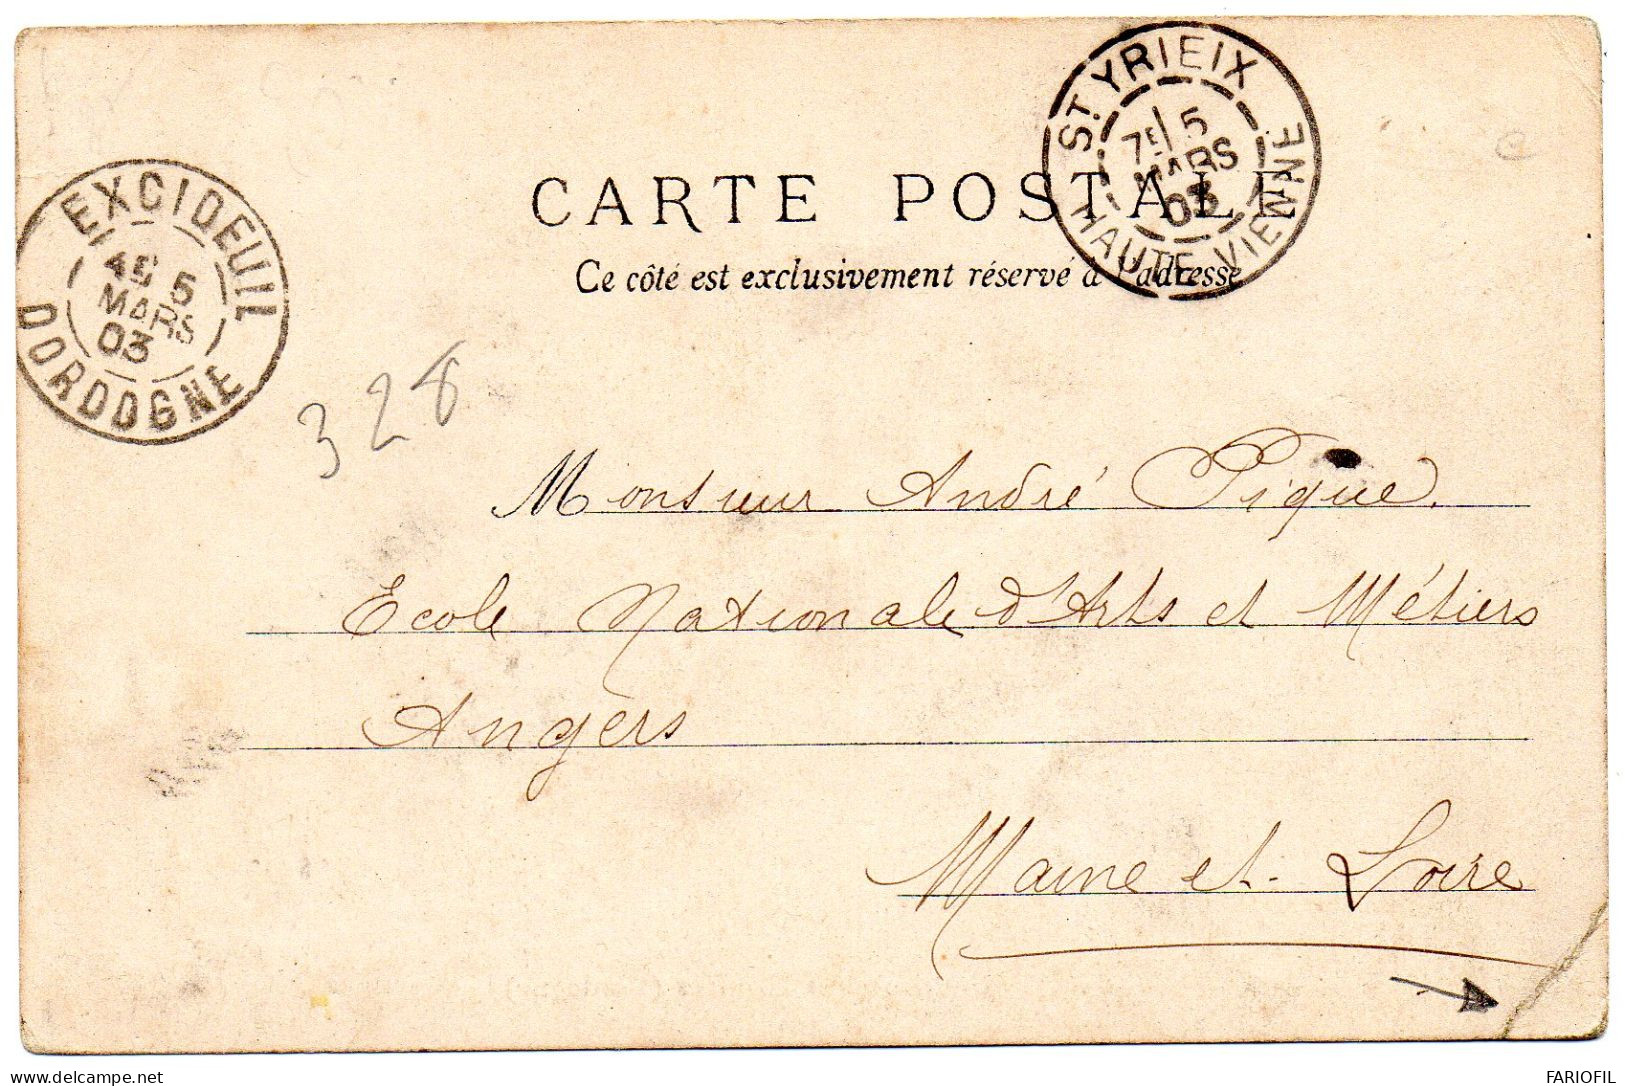 ST YRIEIX
7E 5
MARS
03
HAUTE-VIENNE
EXCIDEUIL
4E 5
MARS
03
DORDOGNE
CARTE POSTALE
Ce côté est exclusivement réservé à l'adresse
328
Monsieur André Pique.
Ecole Nationale d'Arts et Métiers
Angers
Maine et-Loire
www.delcampe.net
FARIOFIL